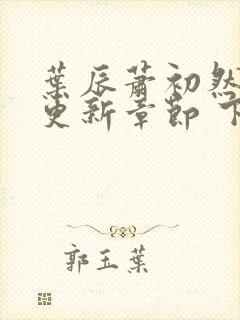 葉辰蕭初然
更新章節 下
郭玉葉